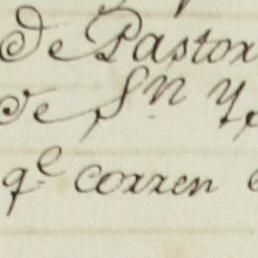 de Pastor
de Sn Y
qe corren